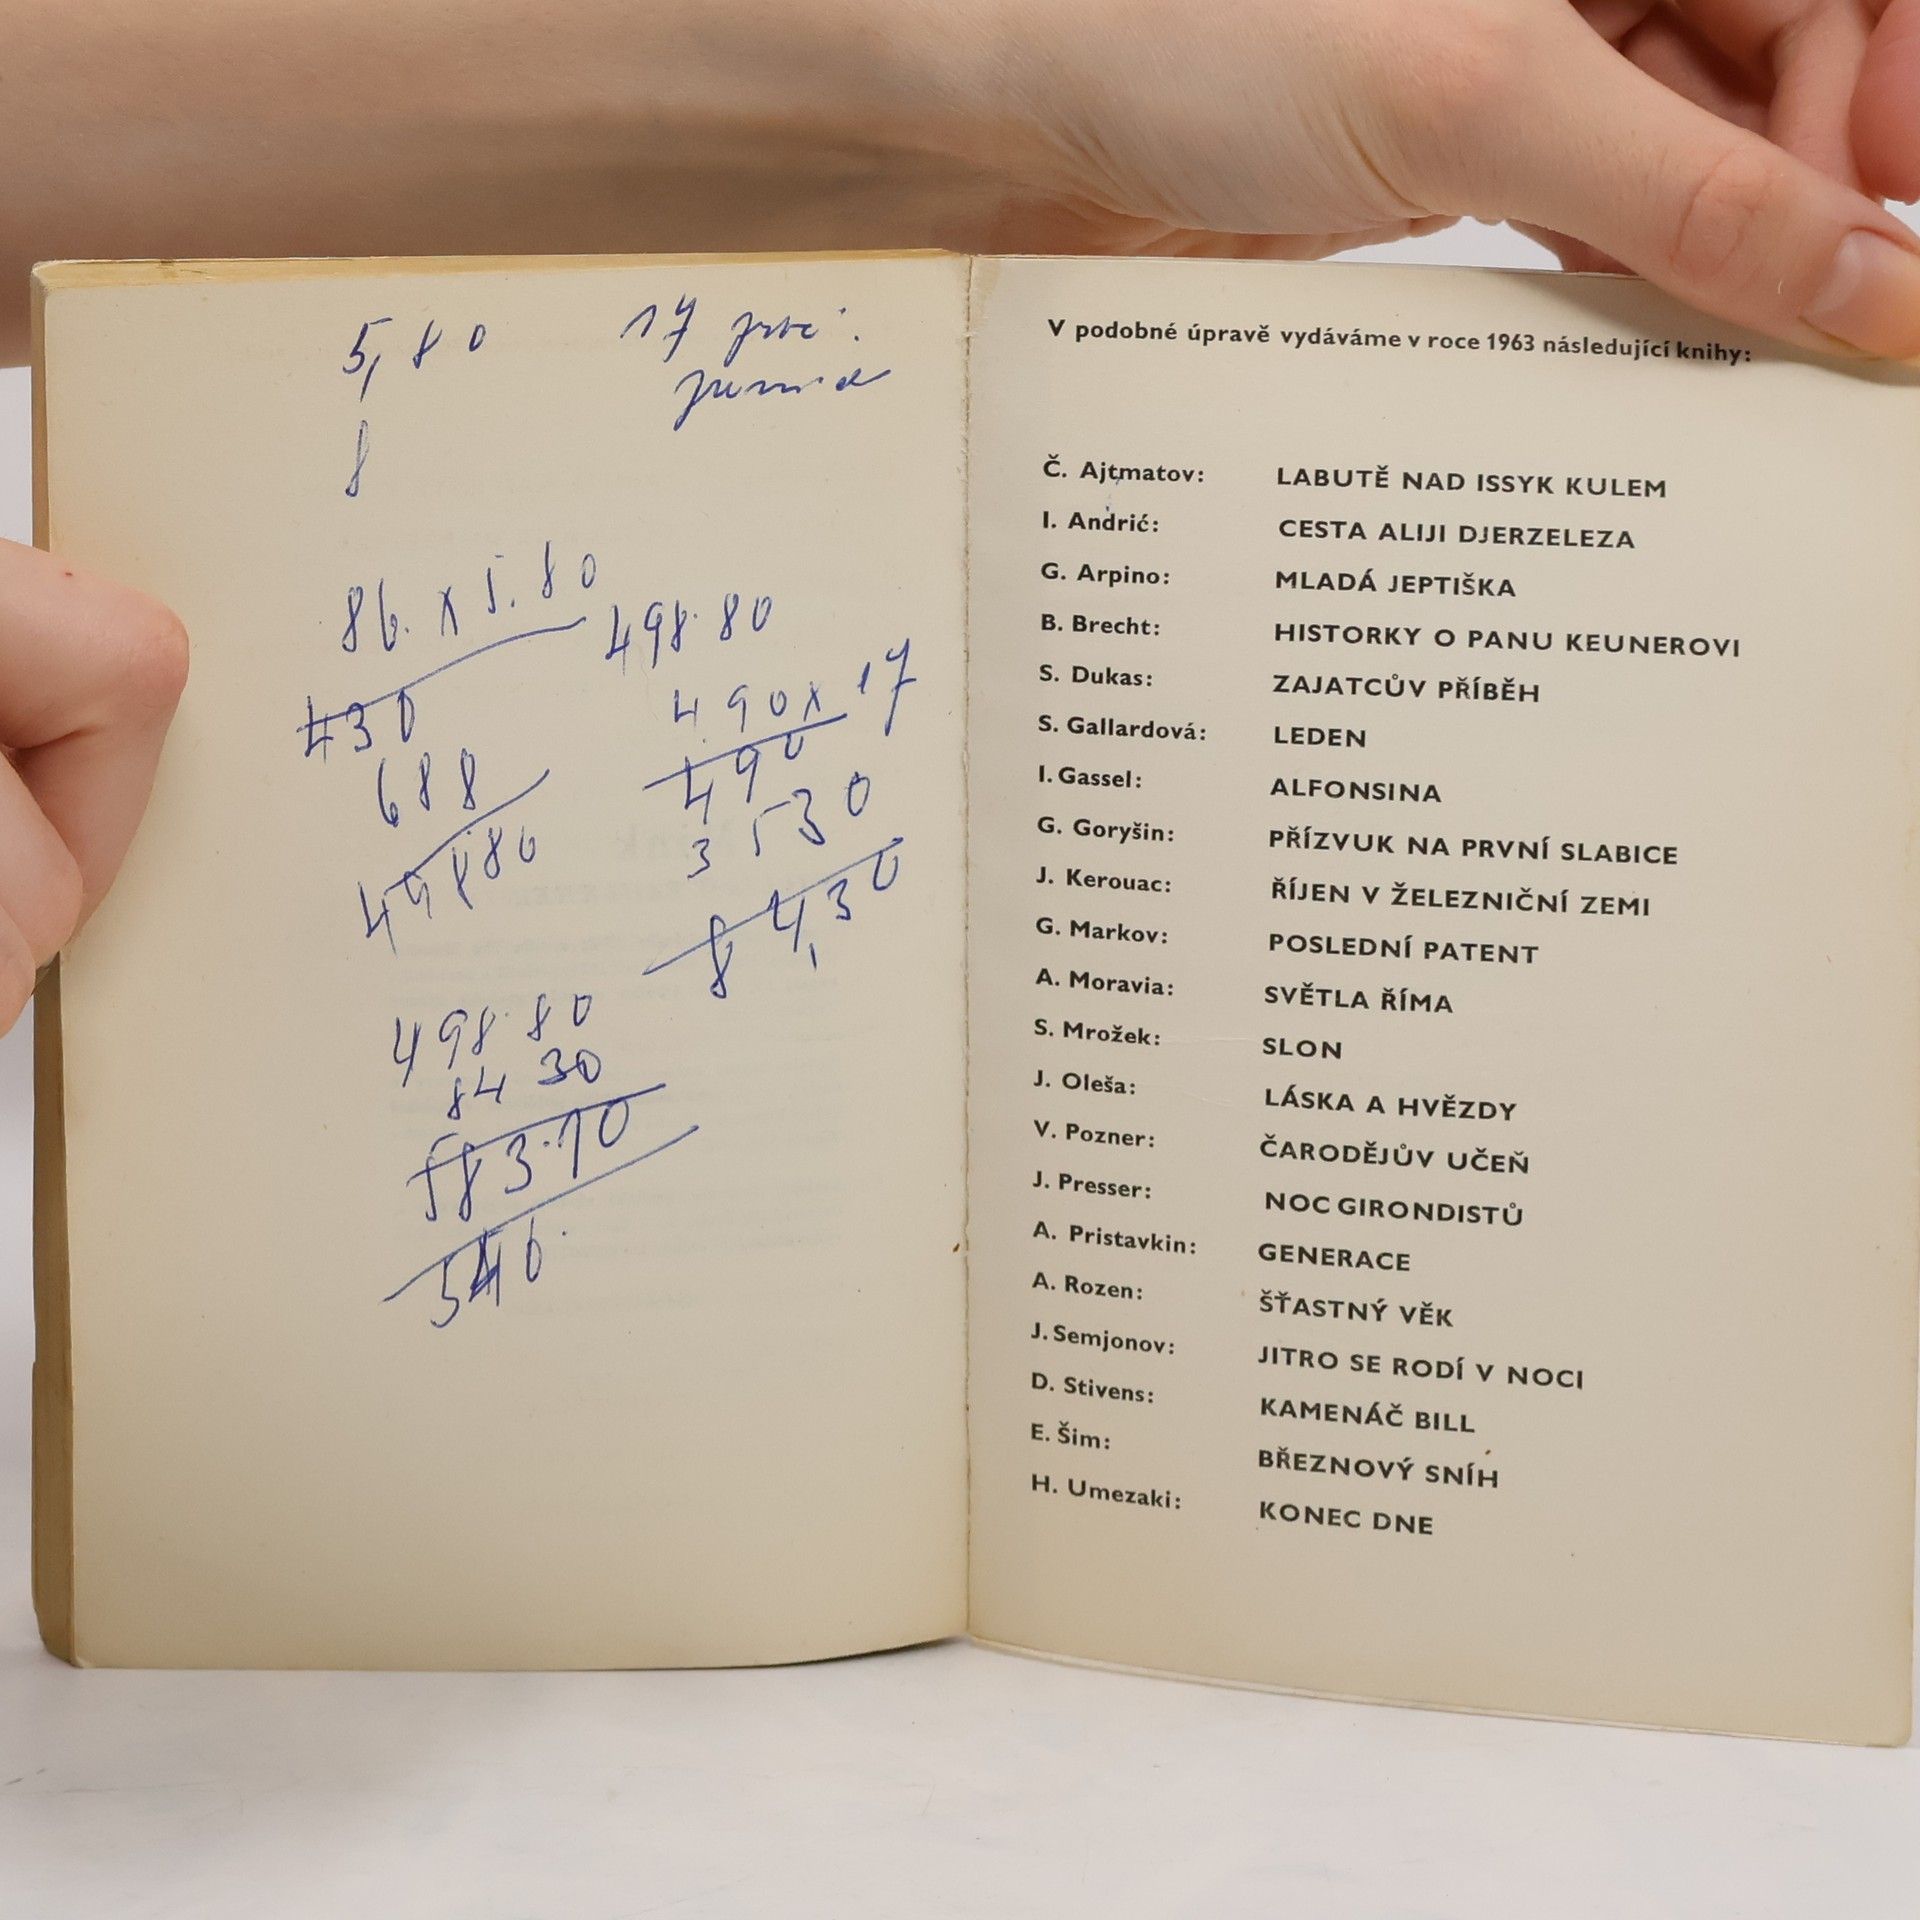 5,80
17
8
86. x 5.80
430
688
49880
498.80
490 x 17
490
3530
84,30
498.80
84 30
583.10
546.
V podobné úpravě vydáváme v roce 1963 následující knihy:
Č. Ajtmatov: LABUTĚ NAD ISSYK KULEM
I. Andrić: CESTA ALIJI DJERZELEZA
G. Arpino: MLADÁ JEPTIŠKA
B. Brecht: HISTORKY O PANU KEUNEROVI
S. Dukas: ZAJATCŮV PŘÍBĚH
S. Gallardová: LEDEN
I. Gassel: ALFONSINA
G. Goryšin: PŘÍZVUK NA PRVNÍ SLABICE
J. Kerouac: ŘÍJEN V ŽELEZNIČNÍ ZEMI
G. Markov: POSLEDNÍ PATENT
A. Moravia: SVĚTLA ŘÍMA
S. Mrožek: SLON
J. Oleša: LÁSKA A HVĚZDY
V. Pozner: ČARODĚJŮV UČEŇ
J. Presser: NOC GIRONDISTŮ
A. Pristavkin: GENERACE
A. Rozen: ŠŤASTNÝ VĚK
J. Semjonov: JITRO SE RODÍ V NOCI
D. Stivens: KAMENÁČ BILL
E. Šim: BŘEZNOVÝ SNÍH
H. Umezaki: KONEC DNE